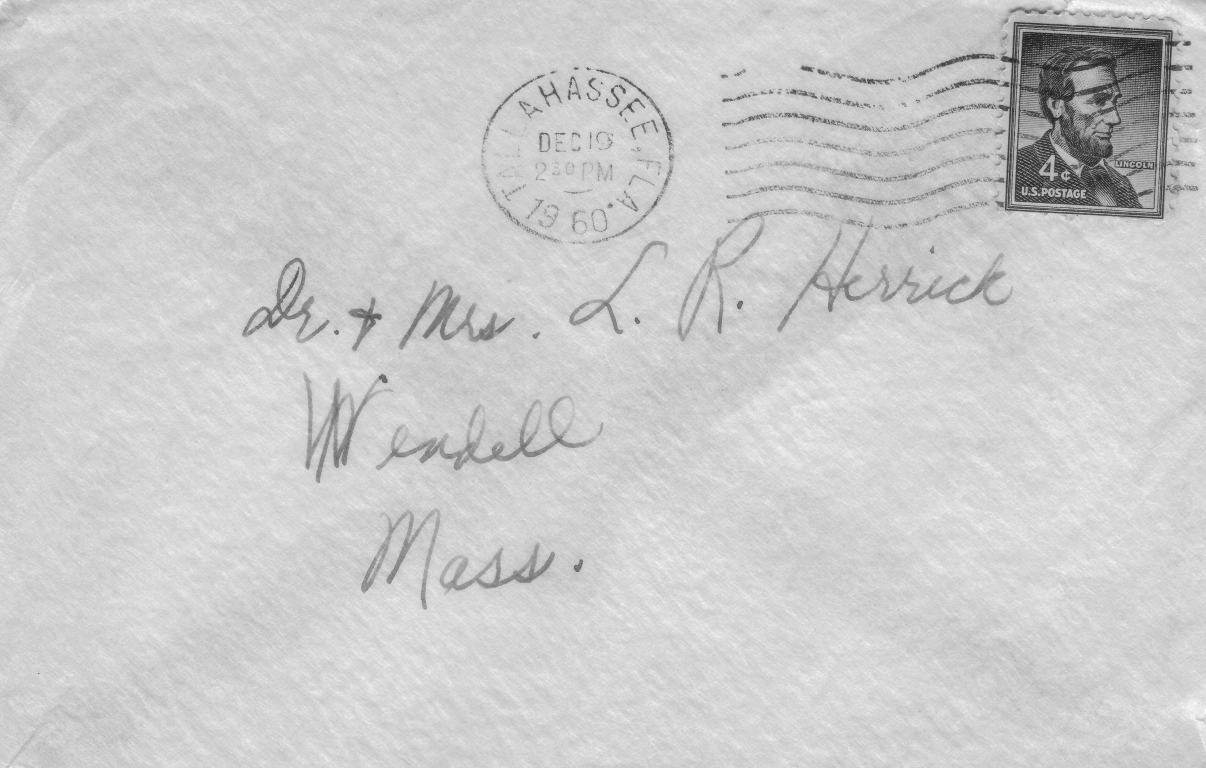 TALLAHASSEE, FLA.
DEC 19
2 30 PM
1960
LINCOLN
4¢
U.S. POSTAGE
Dr. + Mrs. L. R. Herrick
Wendell
Mass.